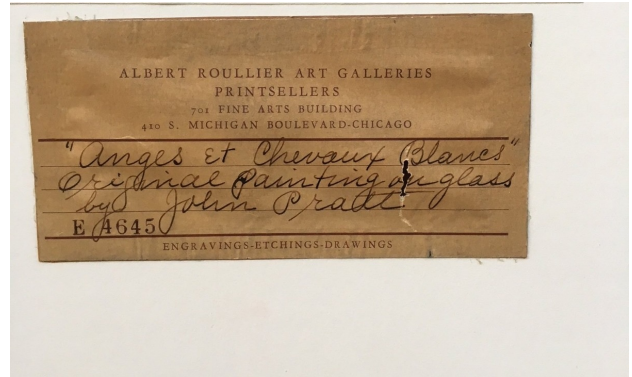 ALBERT ROULLIER ART GALLERIES
PRINTSELLERS
701 FINE ARTS BUILDING
410 S. MICHIGAN BOULEVARD-CHICAGO
"Anges et Chevaux Blancs"
Original Painting on glass
by John Pratt
E 4645
ENGRAVINGS-ETCHINGS-DRAWINGS